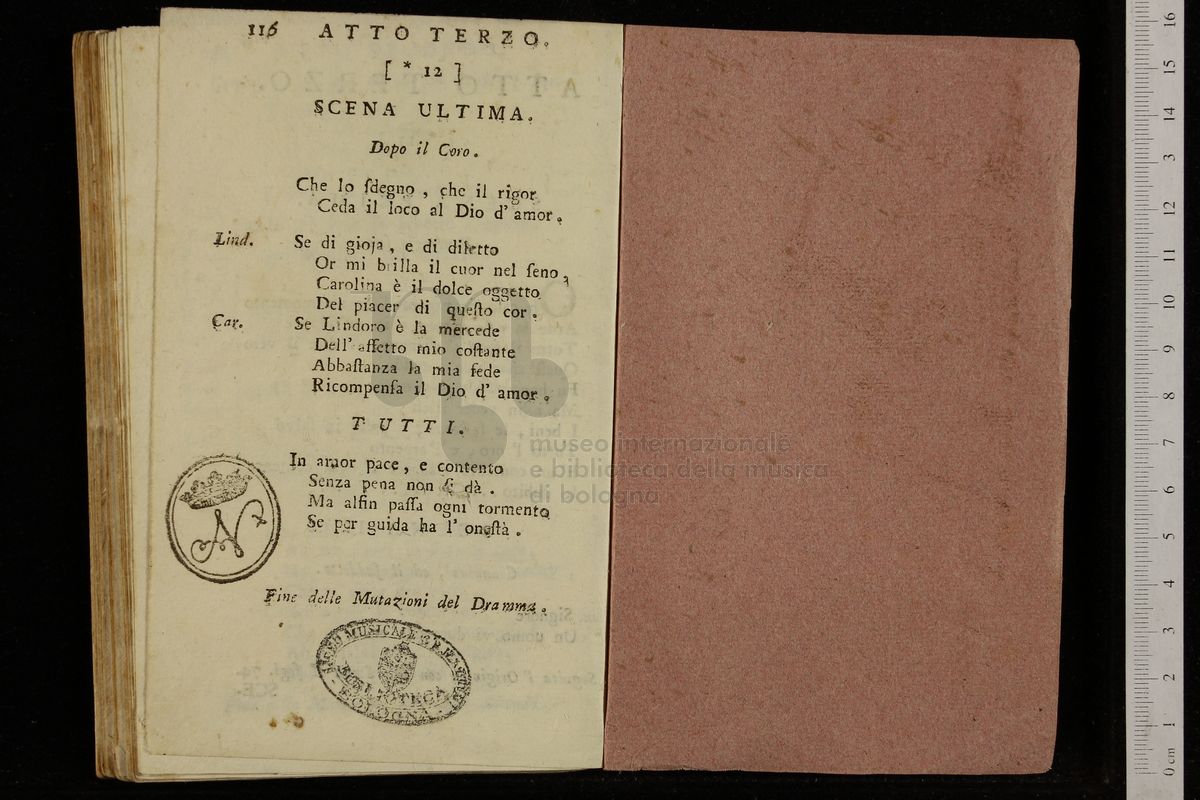 116 ATTO TERZO.
[ * 12 ]
SCENA ULTIMA.
Dopo il Coro.
Che lo ſdegno, che il rigor
Ceda il loco al Dio d' amor.
Lind. Se di gioja, e di diletto
Or mi brilla il cuor nel ſeno,
Carolina è il dolce oggetto
Del piacer di queſto cor.
Car. Se Lindoro è la mercede
Dell' affetto mio coſtante
Abbaſtanza la mia fede
Ricompenſa il Dio d' amor.
TUTTI.
In amor pace, e contento
Senza pena non ſi dà.
Ma alfin paſſa ogni tormento
Se per guida ha l' oneſtà.
N
Fine delle Mutazioni del Dramma.
LICEO MUSICALE
BIBLIOTECA
BOLOGNA
museo internazionale
e biblioteca della musica
di bologna
16
15
14
13
12
11
10
9
8
7
6
5
4
3
2
1
0 cm